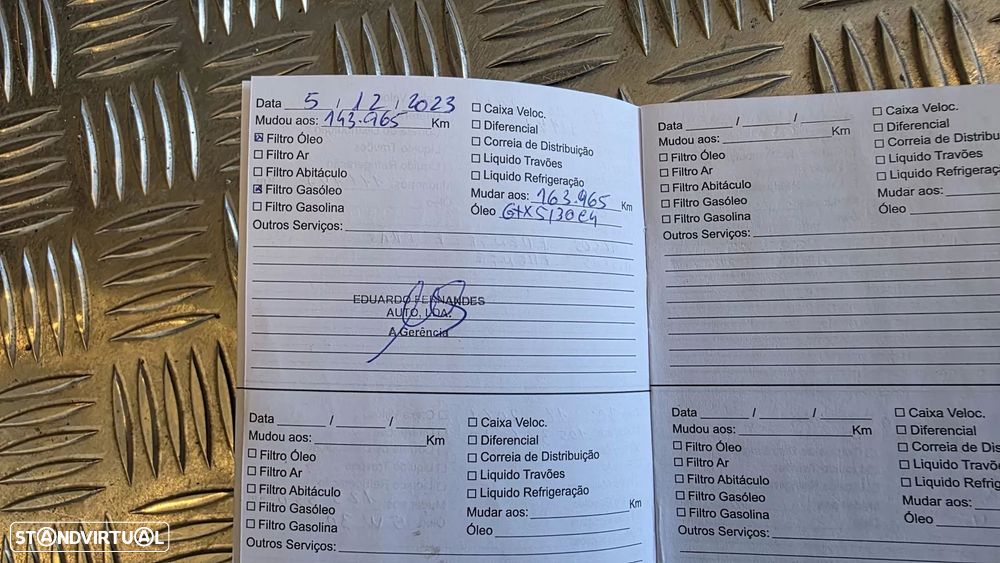 Data 5 / 12 / 2023
Mudou aos: 143.965 Km
Filtro Óleo
Filtro Ar
Filtro Abitáculo
Filtro Gasóleo
Filtro Gasolina
Outros Serviços:
Caixa Veloc.
Diferencial
Correia de Distribuição
Liquido Travões
Liquido Refrigeração
Mudar aos: 163.965 Km
Óleo GTX 5/30 C4
EDUARDO FERNANDES
AUTO, LDA.
A Gerência
Data / /
Mudou aos: Km
Filtro Óleo
Filtro Ar
Filtro Abitáculo
Filtro Gasóleo
Filtro Gasolina
Outros Serviços:
Caixa Veloc.
Diferencial
Correia de Distribu
Liquido Travões
Liquido Refrigeraç
Mudar aos:
Óleo
Data / /
Mudou aos: Km
Filtro Óleo
Filtro Ar
Filtro Abitáculo
Filtro Gasóleo
Filtro Gasolina
Outros Serviços:
Caixa Veloc.
Diferencial
Correia de Distribuição
Liquido Travões
Liquido Refrigeração
Mudar aos: Km
Óleo
Data / /
Mudou aos: Km
Filtro Óleo
Filtro Ar
Filtro Abitáculo
Filtro Gasóleo
Filtro Gasolina
Outros Serviços:
Caixa Veloc.
Diferencial
Correia de Dis
Liquido Travõ
Liquido Refrig
Mudar aos:
Óleo
STANDVIRTUAL